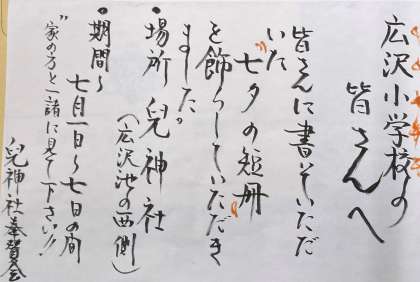 広沢小学校の
皆さんへ
皆さんに書いていただ
いた
"七夕の短冊"
を飾らしていただき
ました。
・場所 兒神社
（広沢池の西側）
・期間〜
七月一日〜七日の間
"家の方と一諸に見て下さい!!
兒神社奉賛会